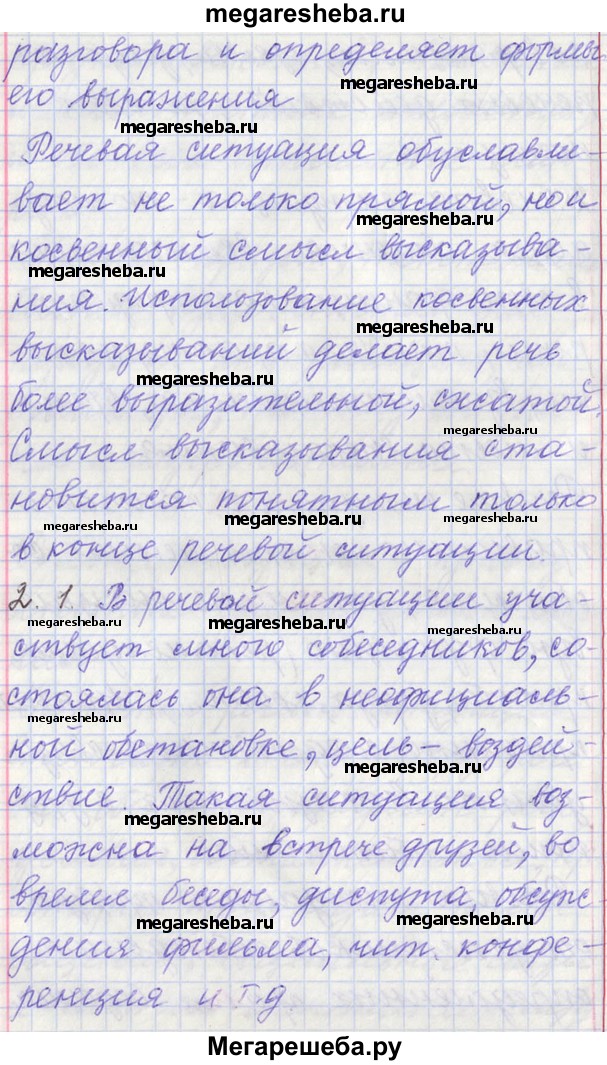 megaresheba.ru
разговора и определяет формы
megaresheba.ru
его выражения
megaresheba.ru
Речевая ситуация обуславли-
вает не только прямой, но и
megaresheba.ru
косвенный смысл высказыва-
megaresheba.ru
ния. Использование косвенных
megaresheba.ru
высказываний делает речь
megaresheba.ru
более выразительной, сжатой.
megaresheba.ru
Смысл высказывания ста-
новится понятным только
megaresheba.ru megaresheba.ru megaresheba.ru
в конце речевой ситуации.
2. 1. В речевой ситуации уча-
megaresheba.ru megaresheba.ru megaresheba.ru
ствует много собеседников, со-
стоялась она в неофициаль-
megaresheba.ru
ной обстановке, цель – воздей-
megaresheba.ru
ствие. Такая ситуация воз-
megaresheba.ru
можна на встрече друзей, во
время беседы, диспута, обсуж-
megaresheba.ru megaresheba.ru
дения фильма, чит. конфе-
ренция и т.д.
Мегарешеба.ру